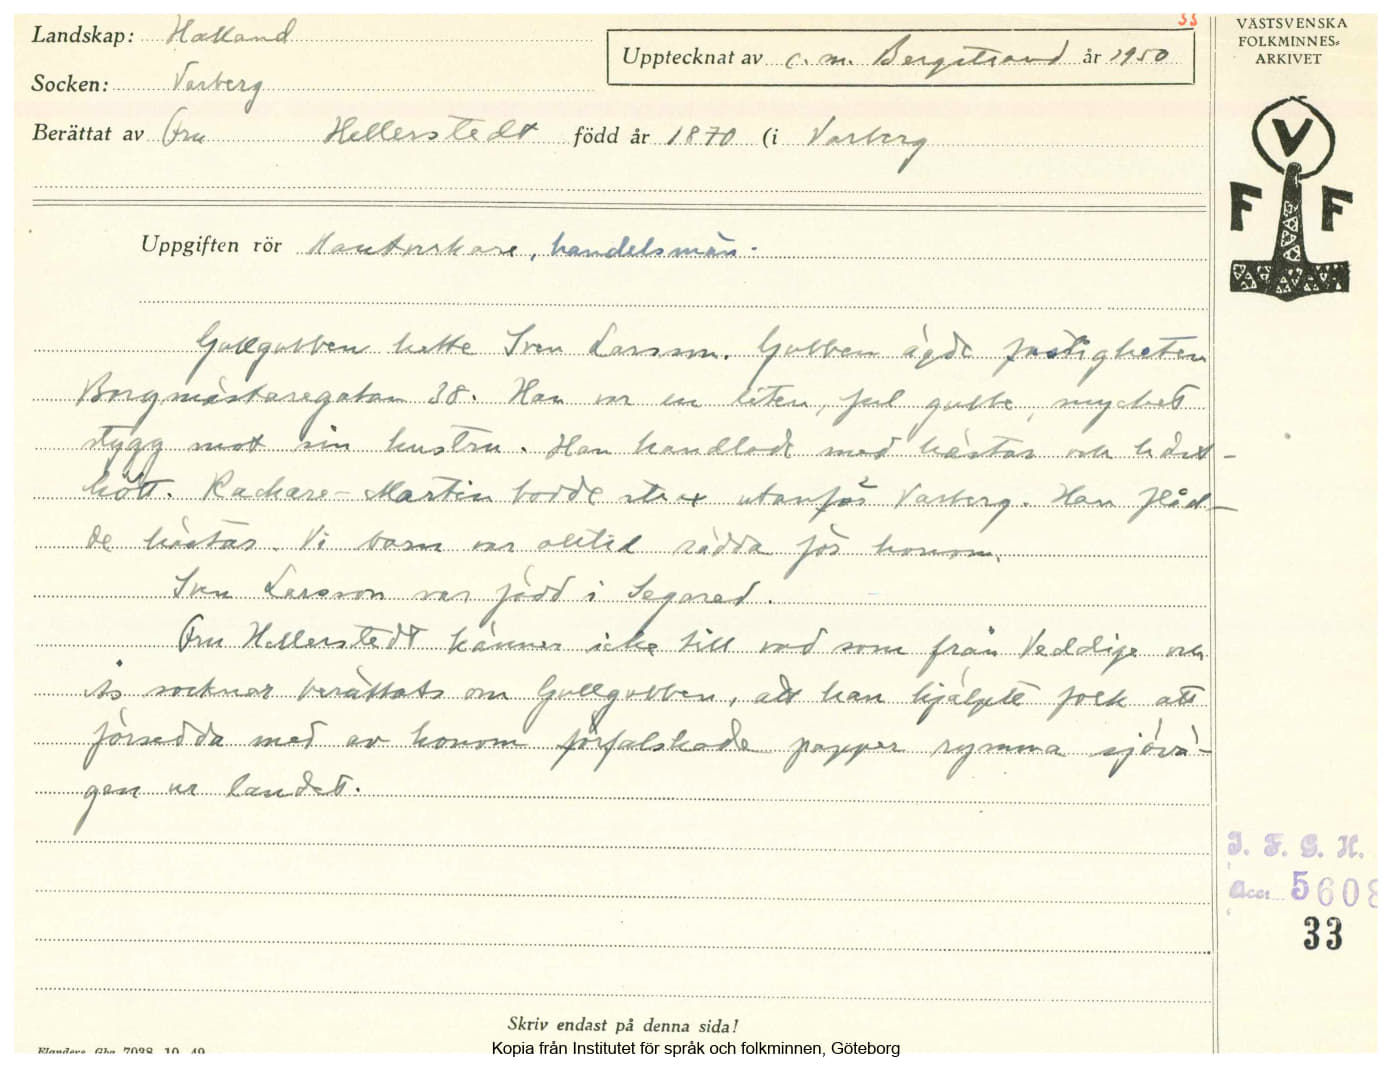 33
VÄSTSVENSKA
FOLKMINNES=
ARKIVET
Landskap: Halland
Upptecknat av C. M. Bergstrand år 1950
Socken: Varberg
Berättat av Fru Hellerstedt född år 1870 (i Varberg
V
F F
Uppgiften rör Hantverkare, handelsmän.
Gullgubben hette Sven Larsson. Gubben ägde fastigheten
Borgmästaregatan 38. Han var en liten, ful gubbe, mycket
stygg mot sin hustru. Han handlade med hästar och häst-
kött. Rackare-Martin bodde strax utanför Varberg. Han flåd-
de hästar. Vi barn var alltid rädda för honom.
Sven Larsson var född i Segared.
Fru Hellerstedt känner icke till vad som från Veddige och
Ås socknar berättats om Gullgubben, att han hjälpte folk att
försedda med av honom förfalskade papper rymma sjövä-
gen ur landet.
I. F. G. H.
Acc. 5608
33
Skriv endast på denna sida!
Flanders Gbg 7038 10 49
Kopia från Institutet för språk och folkminnen, Göteborg